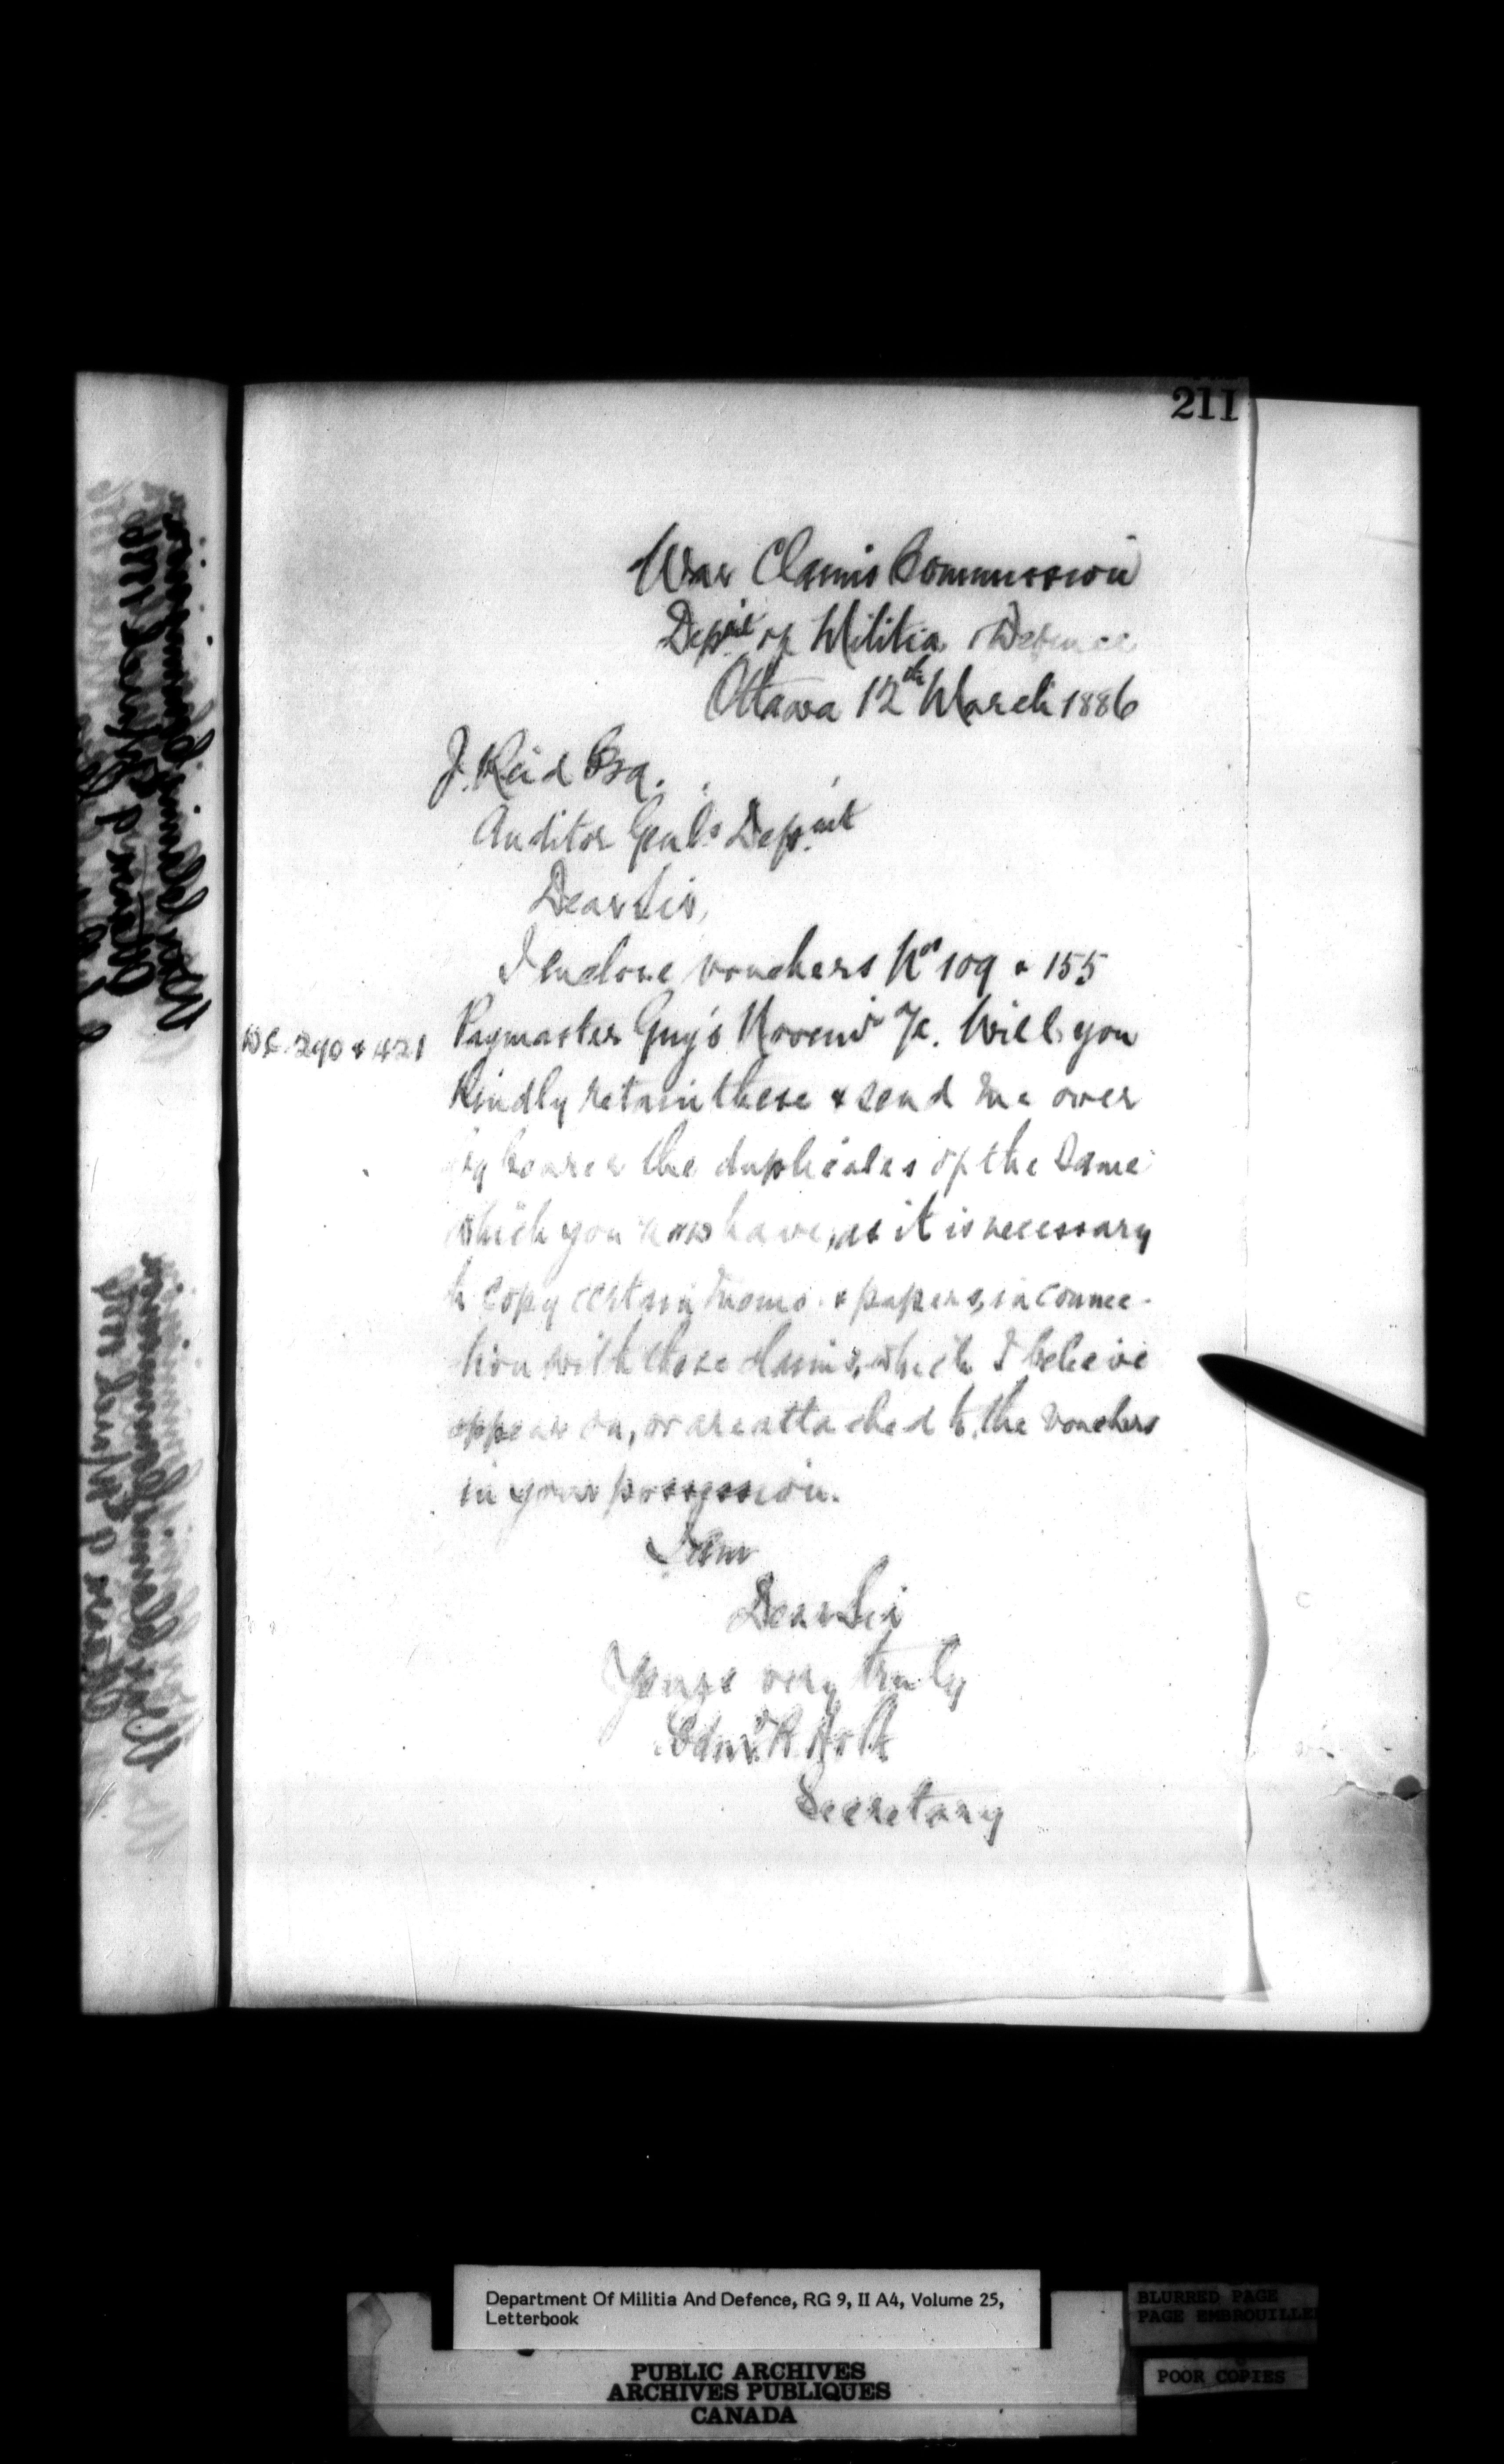 211
War Claims Commission
Dep.mt of Militia & Defence
Ottawa 12th March 1886
J. Reid Esq.
Auditor Genl's Dep.mt
Dear Sir,
I enclose vouchers Nos 109 & 155
W C 290 & 421
Paymaster Guy's Novem'r a/c. Will you
kindly retain these & send me over
by bearer the duplicates of the same
which you now have, as it is necessary
to copy certain memo. & papers, in connec-
tion with these claims, which I believe
appear on, or are attached to, the vouchers
in your possession.
I am
Dear Sir
Yours very truly
Edmd. R. Holt
Secretary
Department Of Militia And Defence, RG 9, II A4, Volume 25,
Letterbook
BLURRED PAGE
PAGE EMBROUILLE
POOR COPIES
PUBLIC ARCHIVES
ARCHIVES PUBLIQUES
CANADA